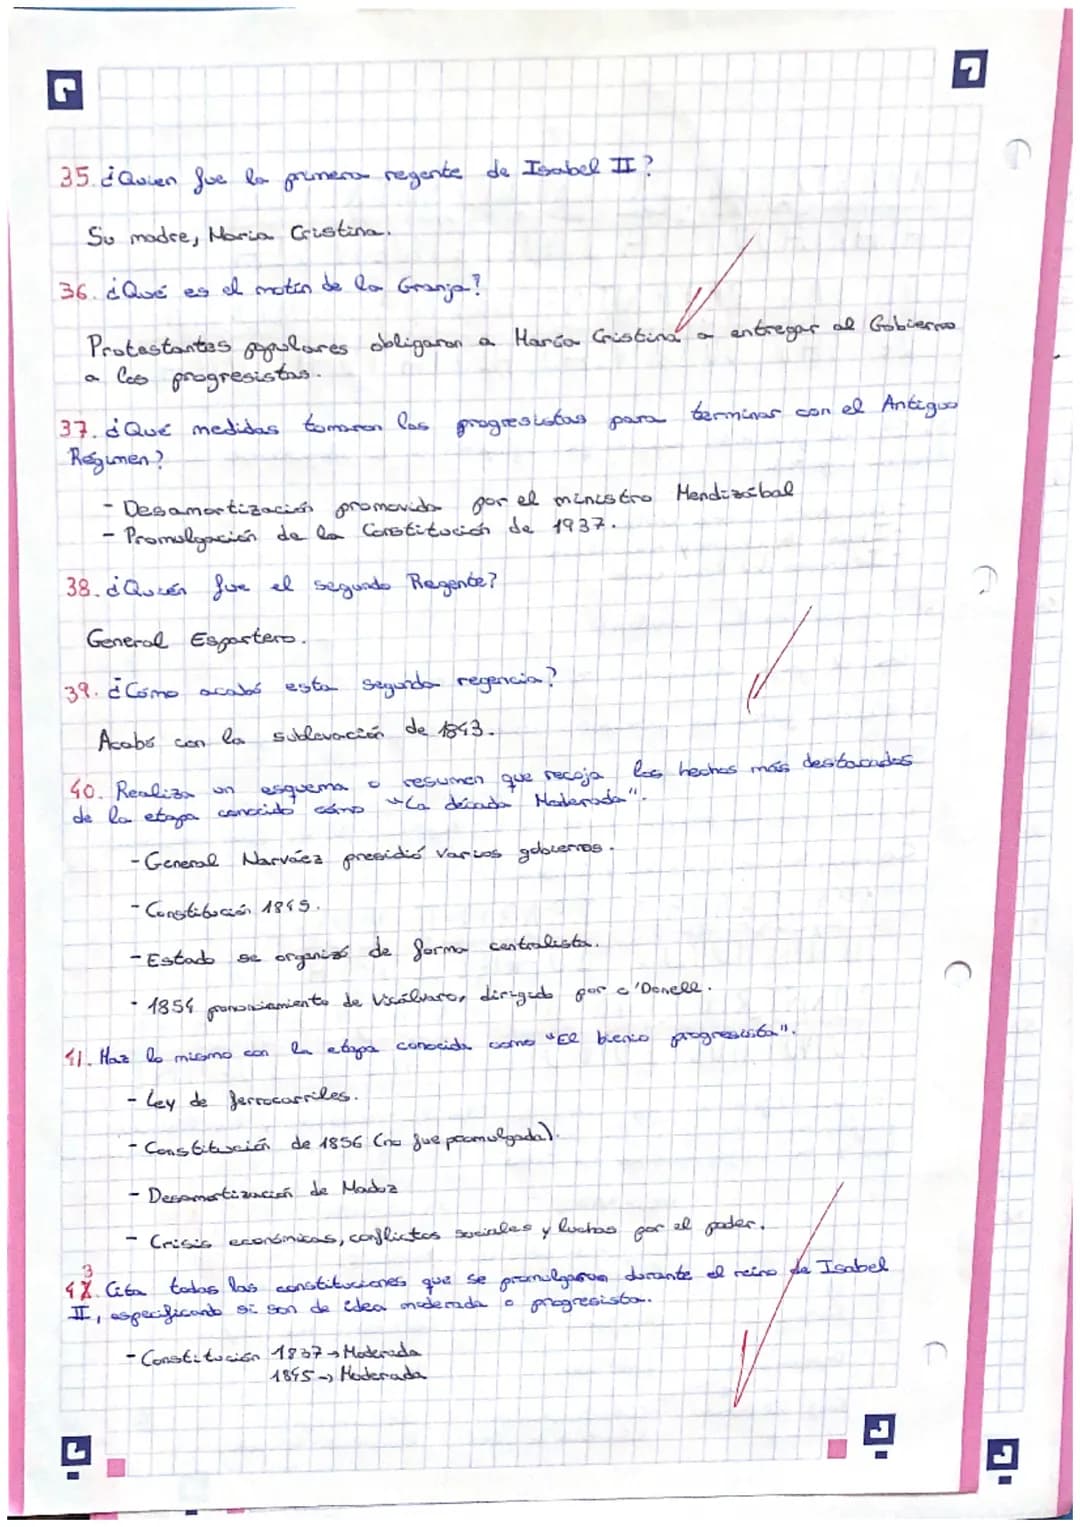 35. ¿Quien fue la primera regente de Isabel II?
Su madre, Maria Cristina.
36. ¿Qué es el motín de la Granja?
Protestantes populares obligaron a María Cristina a entregar al Gobierno
a los progresistas.
37. ¿Qué medidas tomaron los progresistas para terminar con el Antiguo
Régimen?
- Desamortización promovida por el ministro Mendizábal
- Promulgación de la Constitución de 1937.
38. ¿Quién fue el segundo Regente?
General Espartero.
39. ¿Cómo acabó esta segunda regencia?
Acabó con la sublevación de 1843.
40. Realiza un esquema o resumen que recoja los hechos más destacados
de la etapa conocido cómo "La década Moderada".
- General Narváez presidió varios gobiernos.
- Constitución 1845.
- Estado se organizó de forma centralista.
- 1854 pronunciamiento de Vicálvaro, dirigido por o'Donell.
41. Haz lo mismo con la etapa conocida como "El bienio progresista".
- Ley de ferrocarriles.
- Constitución de 1856 (no fue promulgada).
- Desamortización de Madoz
- Crisis económicas, conflictos sociales y luchas por el poder.
43. Cita todas las constituciones que se promulgaron durante el reino de Isabel
II, especificando si son de idea moderada o progresista.
- Constitución 1837 → Moderada
1845 → Moderada